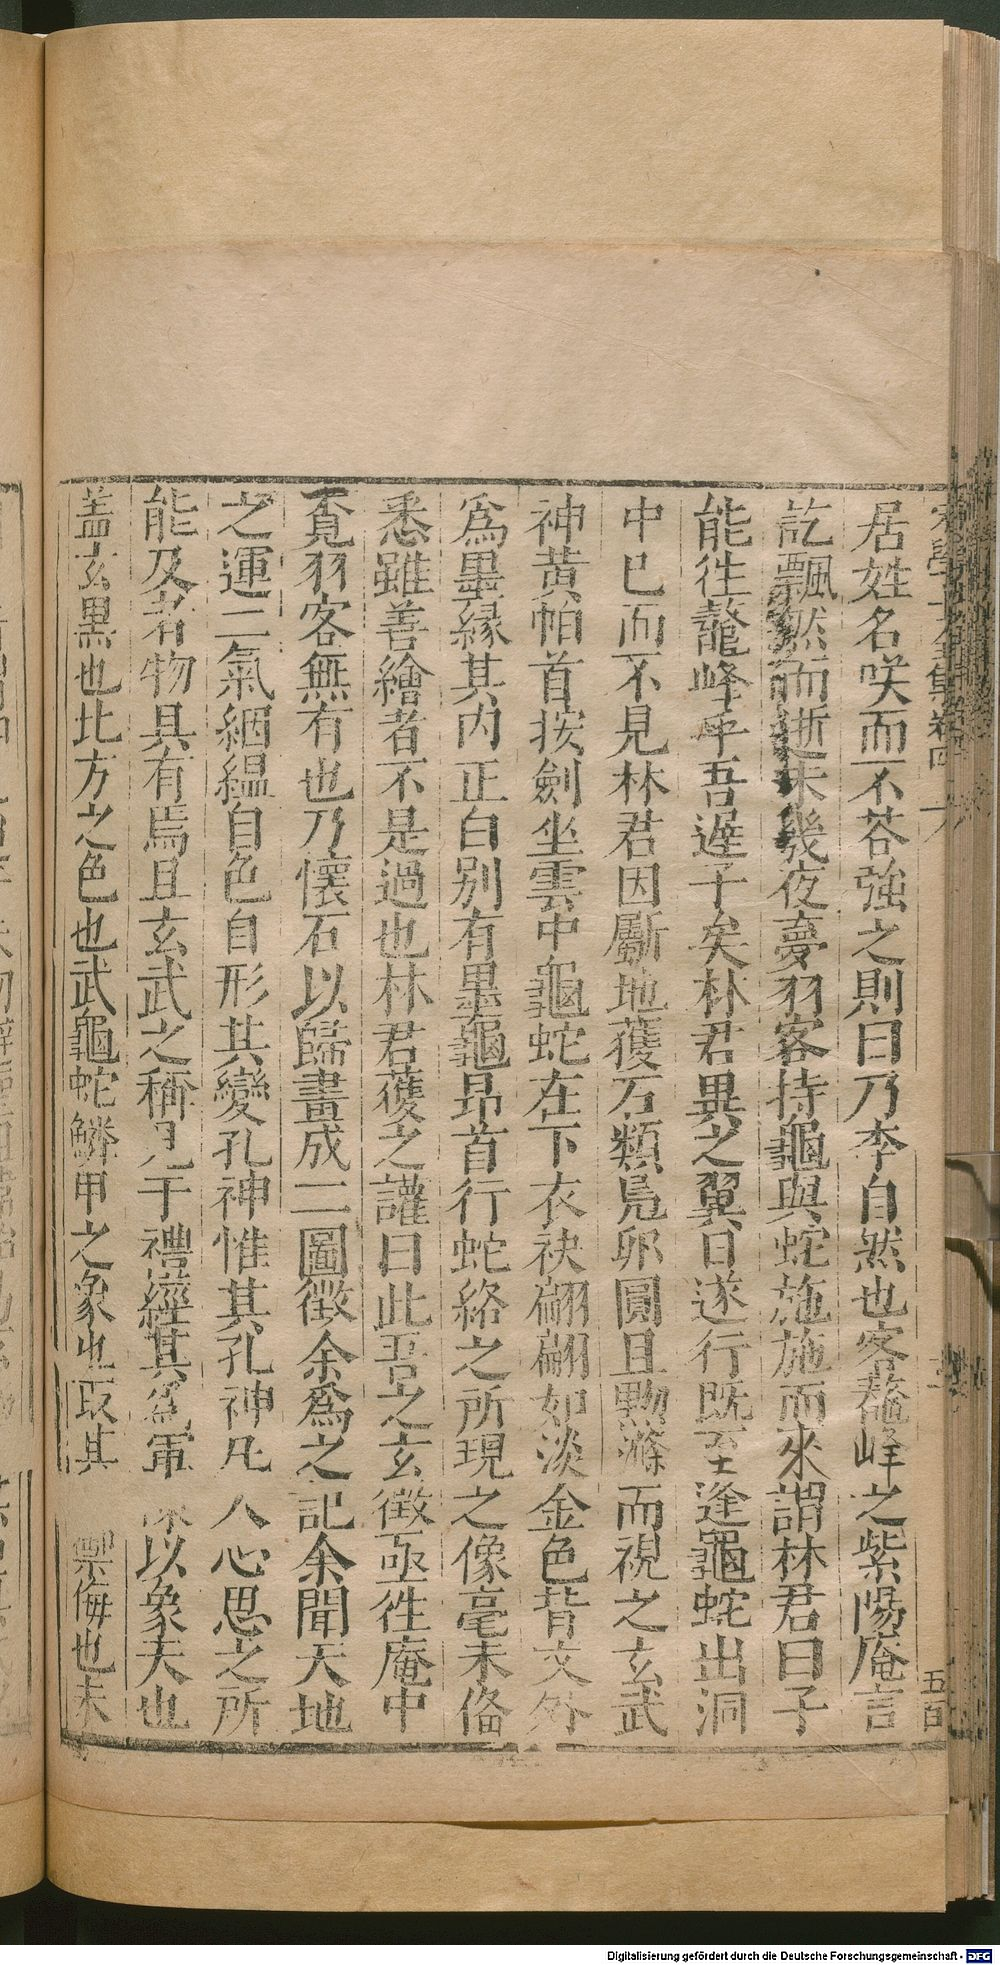 居姓名咲而不荅強之則曰乃李自然也客鼇峰之紫陽庵言
訖飄然而逝未幾夜夢羽客持龜與蛇施施而來謂林君曰子
能徃鼇峰乎吾遲子矣林君異之翼日遂行既至逢龜蛇出洞
中巳而不見林君因斸地獲石類鳬卵圓且黝滌而視之玄武
神黄帕首按劍坐雲中龜蛇在下衣袂翩翩如淡金色背文外
爲墨緣其内正白别有墨龜昂首行蛇絡之所現之像毫末俻
悉雖善繪者不是過也林君䕶之讙曰此吾之玄徴亟徃庵中
覔羽客無有也乃懷石以歸畫成二圖徴余爲之記余聞天地
之運二氣絪緼自色自形其變孔神惟其孔神凡人心思之所
能及者物具有焉且玄武之稱見于禮經其爲軍以象夫也
盖玄黒也北方之色也武龜蛇鱗甲之象也取其禦侮也未
卷四
五百
Digitalisierung gefördert durch die Deutsche Forschungsgemeinschaft - DFG